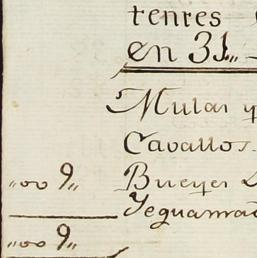 tenres
en 31,,
Mulas y
Cavallos.
,,00 9,, Bueyes
Yeguas
,,00 9,,